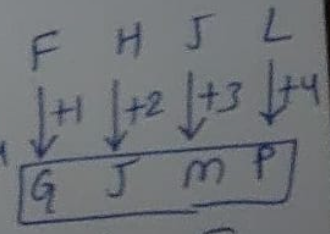 F H J L
+1 +2 +3 +4
G J M P